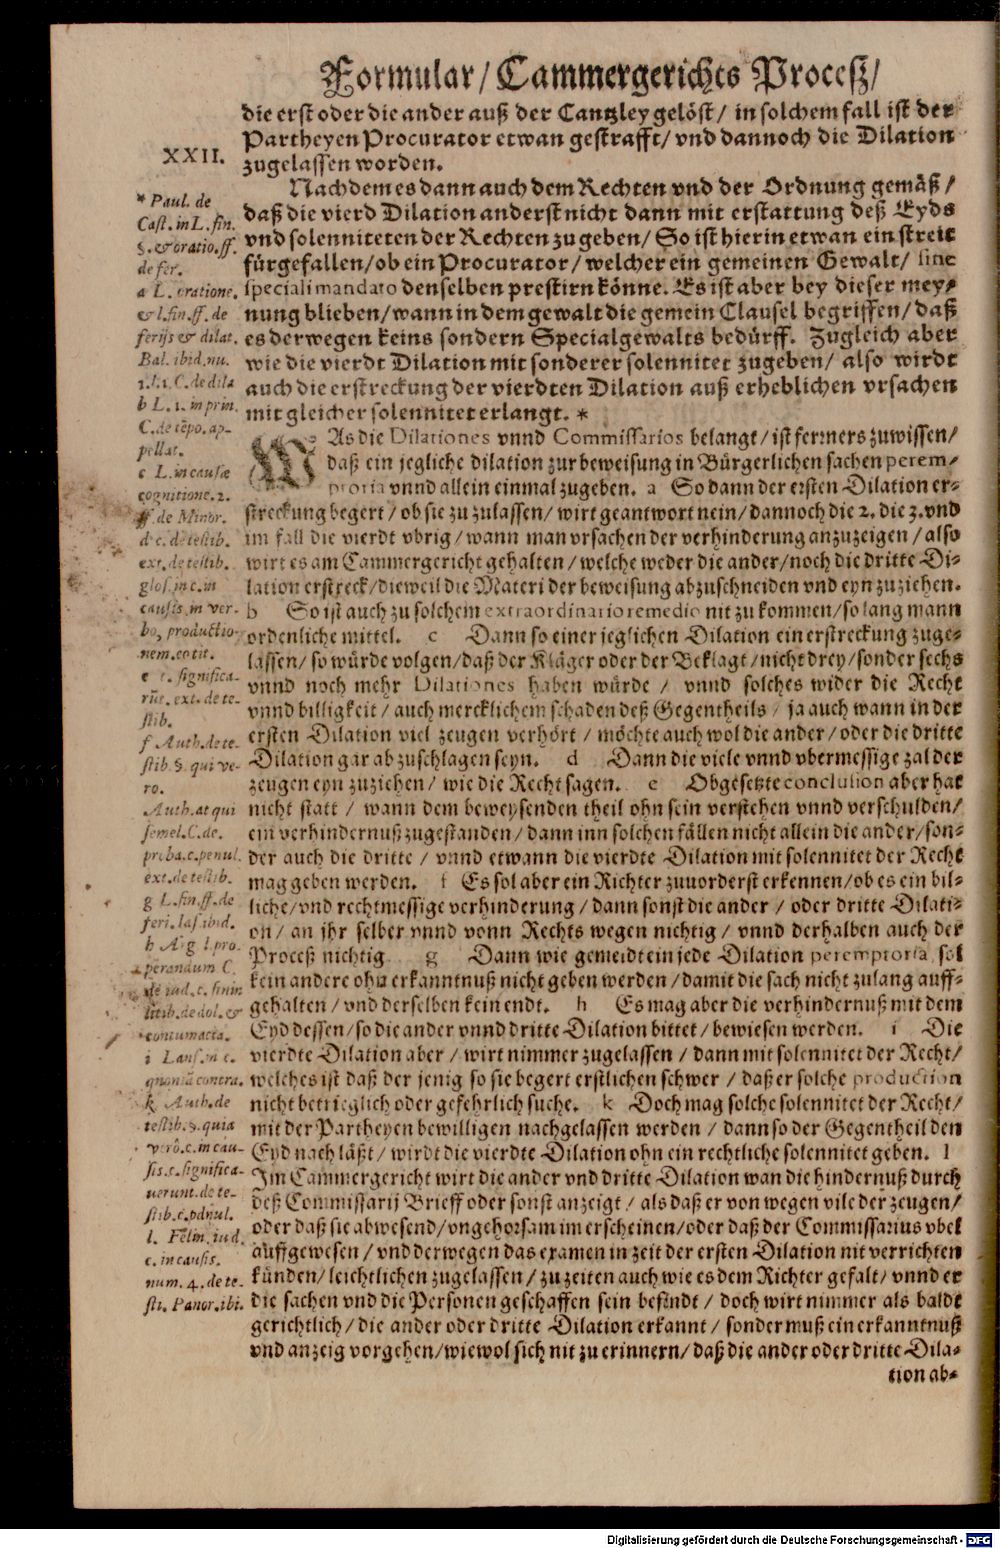 Formular / Cammergerichts Proceß /
die erst oder die ander auß der Cantzley gelöst / in solchem fall ist der
Partheyen Procurator etwan gestrafft / vnd dannoch die Dilation
zugelassen worden.
XXII.
Nachdem es dann auch dem Rechten vnd der Ordnung gemäß /
daß die vierd Dilation anderst nicht dann mit erstattung deß Eyds
vnd solenniteten der Rechten zu geben / So ist hierin etwan ein streit
fürgefallen / ob ein Procurator / welcher ein gemeinen Gewalt / sine
speciali mandato denselben prestirn könne. Es ist aber bey dieser mey-
nung blieben / wann in dem gewalt die gemein Clausel begriffen / daß
es derwegen keins sondern Specialgewalts bedürff. Zugleich aber
wie die vierdt Dilation mit sonderer solennitet zugeben / also wirdt
auch die erstreckung der vierdten Dilation auß erheblichen vrsachen
mit gleicher solennitet erlangt. *
WAs die Dilationes vnnd Commissarios belangt / ist ferrners zuwissen /
daß ein jegliche dilation zur beweisung in Bürgerlichen sachen perem-
ptoria vnnd allein einmal zugeben. a So dann der ersten Dilation er-
streckung begert / ob sie zu zulassen / wirt geantwort nein / dannoch die 2. die 3. vnd
im fall die vierdt vbrig / wann man vrsachen der verhinderung anzuzeigen / also
wirt es am Cammergericht gehalten / welche weder die ander / noch die dritte Di-
lation erstreck / dieweil die Materi der beweisung abzuschneiden vnd eyn zuziehen.
b So ist auch zu solchem extraordinario remedio nit zu kommen / so lang mann
ordenliche mittel. c Dann so einer jeglichen Dilation ein erstreckung zuge-
lassen / so würde volgen / daß der Kläger oder der Beklagt / nicht drey / sonder sechs
vnnd noch mehr Dilationes haben würde / vnnd solches wider die Recht
vnnd billigkeit / auch mercklichem schaden deß Gegentheils / ja auch wann in der
ersten Dilation viel zeugen verhört / möchte auch wol die ander / oder die dritte
Dilation gar abzuschlagen seyn. d Dann die viele vnnd vbermessige zal der
zeugen eyn zuziehen / wie die Recht sagen. e Obgesetzte conclusion aber hat
nicht statt / wann dem beweysenden theil ohn sein verstehen vnnd verschulden /
ein verhindernuß zugestanden / dann inn solchen fällen nicht allein die ander / son-
der auch die dritte / vnnd etwann die vierdte Dilation mit solennitet der Recht
mag geben werden. f Es sol aber ein Richter zuuorderst erkennen / ob es ein bil-
liche / vnd rechtmessige verhinderung / dann sonst die ander / oder dritte Dilati-
on / an jhr selber vnnd vonn Rechts wegen nichtig / vnnd derhalben auch der
Proceß nichtig g Dann wie gemeldt ein jede Dilation peremptoria, sol
kein andere ohn erkanntnuß nicht geben werden / damit die sach nicht zulang auff-
gehalten / vnd derselben kein endt. h Es mag aber die verhindernuß mit dem
Eyd dessen / so die ander vnnd dritte Dilation bittet / bewiesen werden. i Die
vierdte Dilation aber / wirt nimmer zugelassen / dann mit solennitet der Recht /
welches ist daß der jenig so sie begert erstlichen schwer / daß er solche production
nicht betrieglich oder gefehrlich suche. k Doch mag solche solennitet der Recht /
mit der Partheyen bewilligen nachgelassen werden / dann so der Gegentheil den
Eyd nach läßt / wirdt die vierdte Dilation ohn ein rechtliche solennitet geben. l
Im Cammergericht wirt die ander vnd dritte Dilation wan die hindernuß durch
deß Commissarij Brieff oder sonst anzeigt / als daß er von wegen vile der zeugen /
oder daß sie abwesend / vngehorsam im erscheinen / oder daß der Commissarius vbel
auffgewesen / vnd derwegen das examen in zeit der ersten Dilation nit verrichten
künden / leichtlichen zugelassen / zu zeiten auch wie es dem Richter gefalt / vnnd er
die sachen vnd die Personen geschaffen sein befindt / doch wirt nimmer als baldt
gerichtlich / die ander oder dritte Dilation erkannt / sonder muß ein erkanntnuß
vnd anzeig vorgehen / wiewol sich nit zu erinnern / daß die ander oder dritte Dila-
tion ab-
* Paul. de
Cast. in L. fin.
§. & oratio. ff.
de fer.
a L. oratione.
& l. fin. ff. de
ferijs & dilat.
Bal. ibid. nu.
1. l. 1. C. de dila
b L. 1. in prin.
C. de tẽpo. ap-
pellat.
c L. in causæ
cognitione. 2.
ff. de Minor.
d c. de testib.
ext. de testib.
glos. in c. in
causis in ver-
bo, productio-
nem. eo tit.
e c. significa-
rũt. ext. de te-
stib.
f Auth. de te-
stib. §. qui ve-
ro.
Auth. at qui
semel. C. de.
proba. c. penul.
ext. de testib.
g L. fin. ff. de
feri. Ias. ibid.
h Arg. l. pro-
perandum C.
de iud. c. finin
litib. de dol. &
contumacia.
i Lans. in c.
quoniã contra.
k Auth. de
testib. §. quia
verò. c. in cau-
sis. c. significa-
uerunt. de te-
stib. c. vlnul.
l. Felin. in d.
c. in causis.
num. 4. de te-
sti. Panor. ibi.
Digitalisierung gefördert durch die Deutsche Forschungsgemeinschaft - DFG